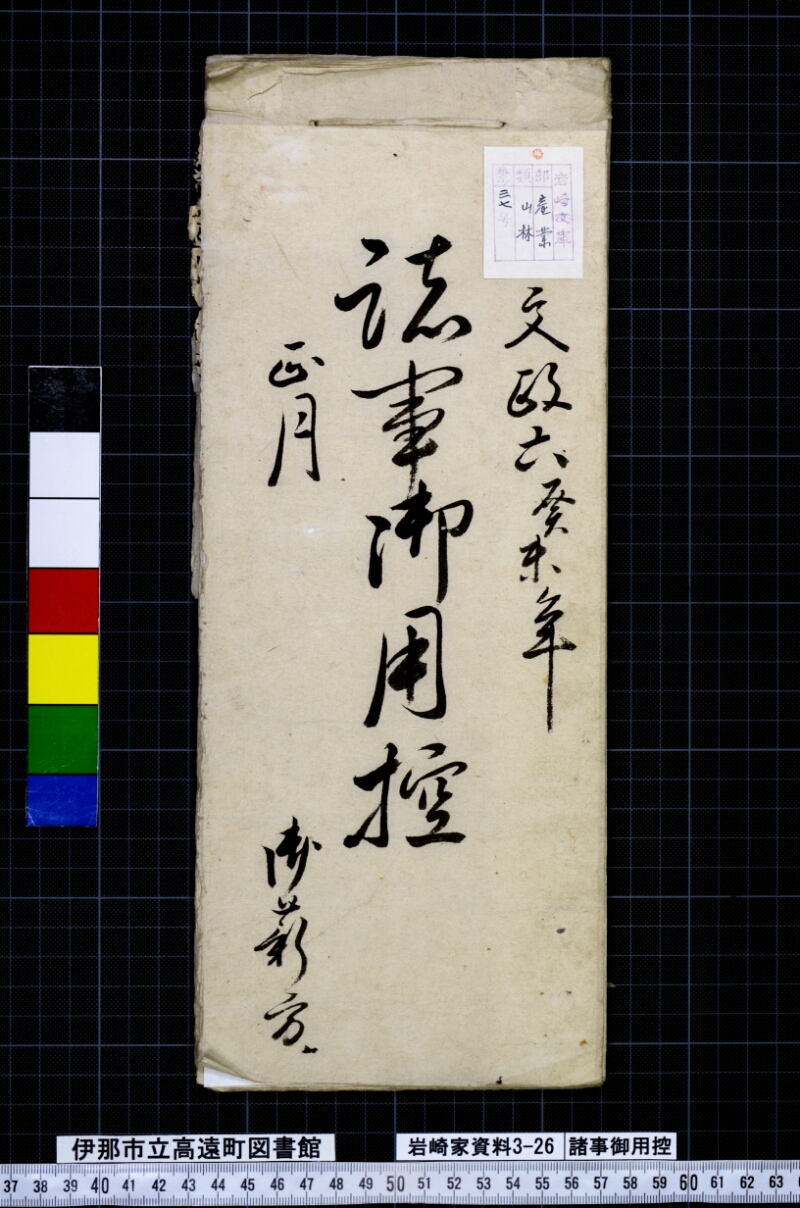 岩崎文庫
部 産業
類 山林
番號 三七号
文政六癸未年
諸事御用控
正月
御薪方
伊那市立高遠町図書館
岩崎家資料3-26
諸事御用控
37 38 39 40 41 42 43 44 45 46 47 48 49 50 51 52 53 54 55 56 57 58 59 60 61 62 63